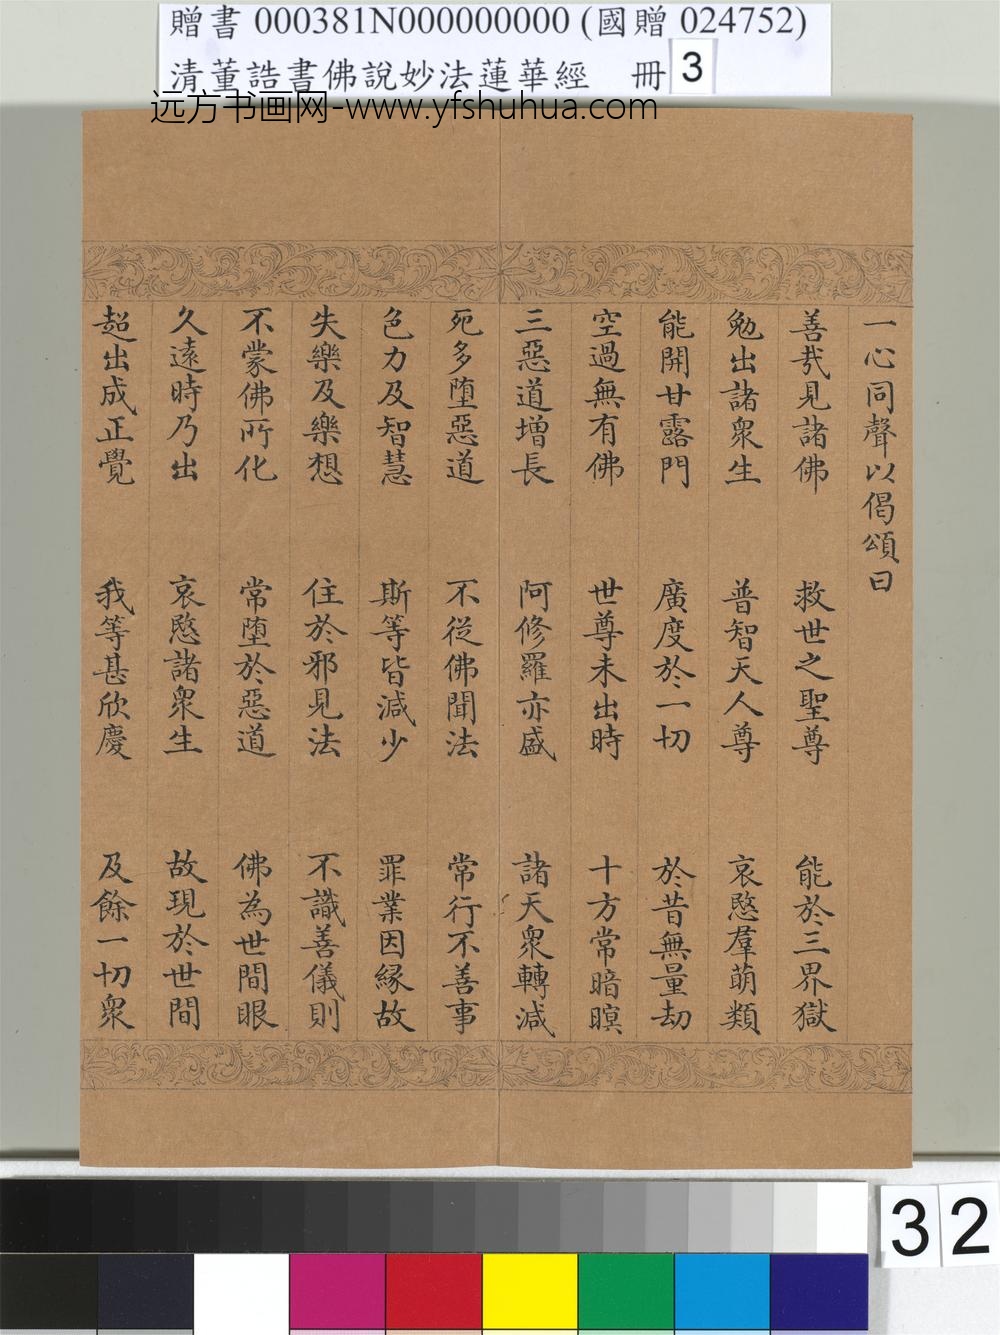 贈書 000381N000000000 (國贈 024752)
清董誥書佛說妙法蓮華經 冊 3
远方书画网-www.yfshuhua.com
一心同聲以偈頌曰
善哉見諸佛 救世之聖尊 能於三界獄
勉出諸眾生 普智天人尊 哀愍羣萌類
能開甘露門 廣度於一切 於昔無量劫
空過無有佛 世尊未出時 十方常暗暝
三惡道增長 阿修羅亦盛 諸天眾轉減
死多墮惡道 不從佛聞法 常行不善事
色力及智慧 斯等皆減少 罪業因緣故
失樂及樂想 住於邪見法 不識善儀則
不蒙佛所化 常墮於惡道 佛為世間眼
久遠時乃出 哀愍諸眾生 故現於世間
超出成正覺 我等甚欣慶 及餘一切眾
32